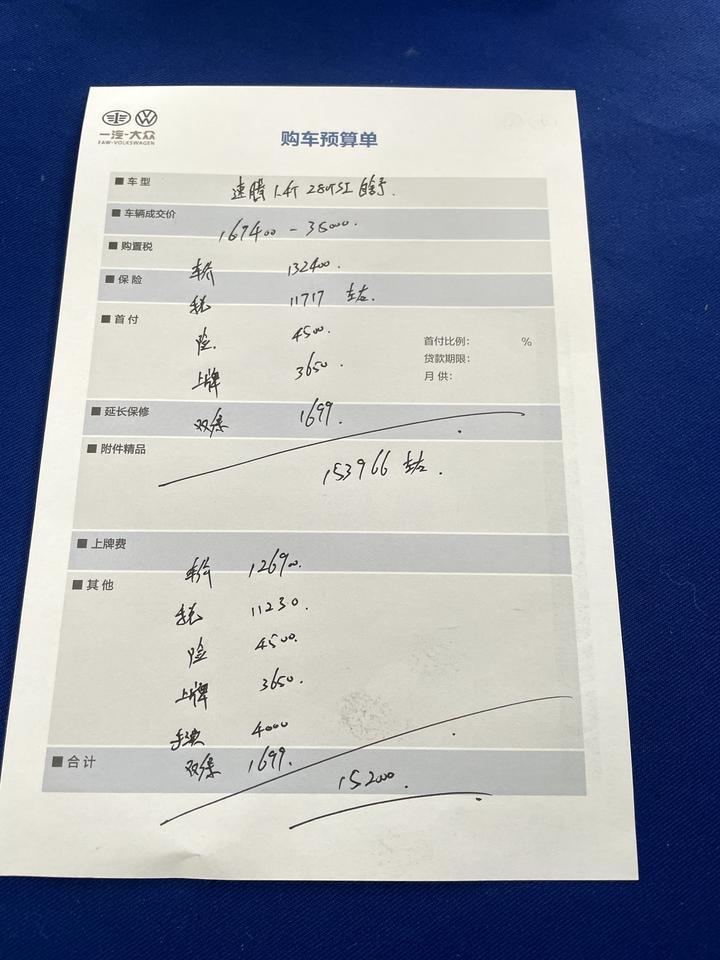 一汽-大众
FAW-VOLKSWAGEN
购车预算单
■ 车 型 速腾 1.4T 280TSI 自舒.
■ 车辆成交价 169400 - 36000.
■ 购置税
车价 132400.
■ 保 险
税 11717 左右.
■ 首 付
险. 4500.
首付比例: %
贷款期限:
上牌 3650.
月 供:
■ 延长保修
双保 1699.
■ 附件精品
153966 左右.
■ 上牌费
车价 126900.
■ 其 他
税 11230.
险 4500.
上牌 3650.
手续 4000
■ 合 计
双保 1699.
152000.